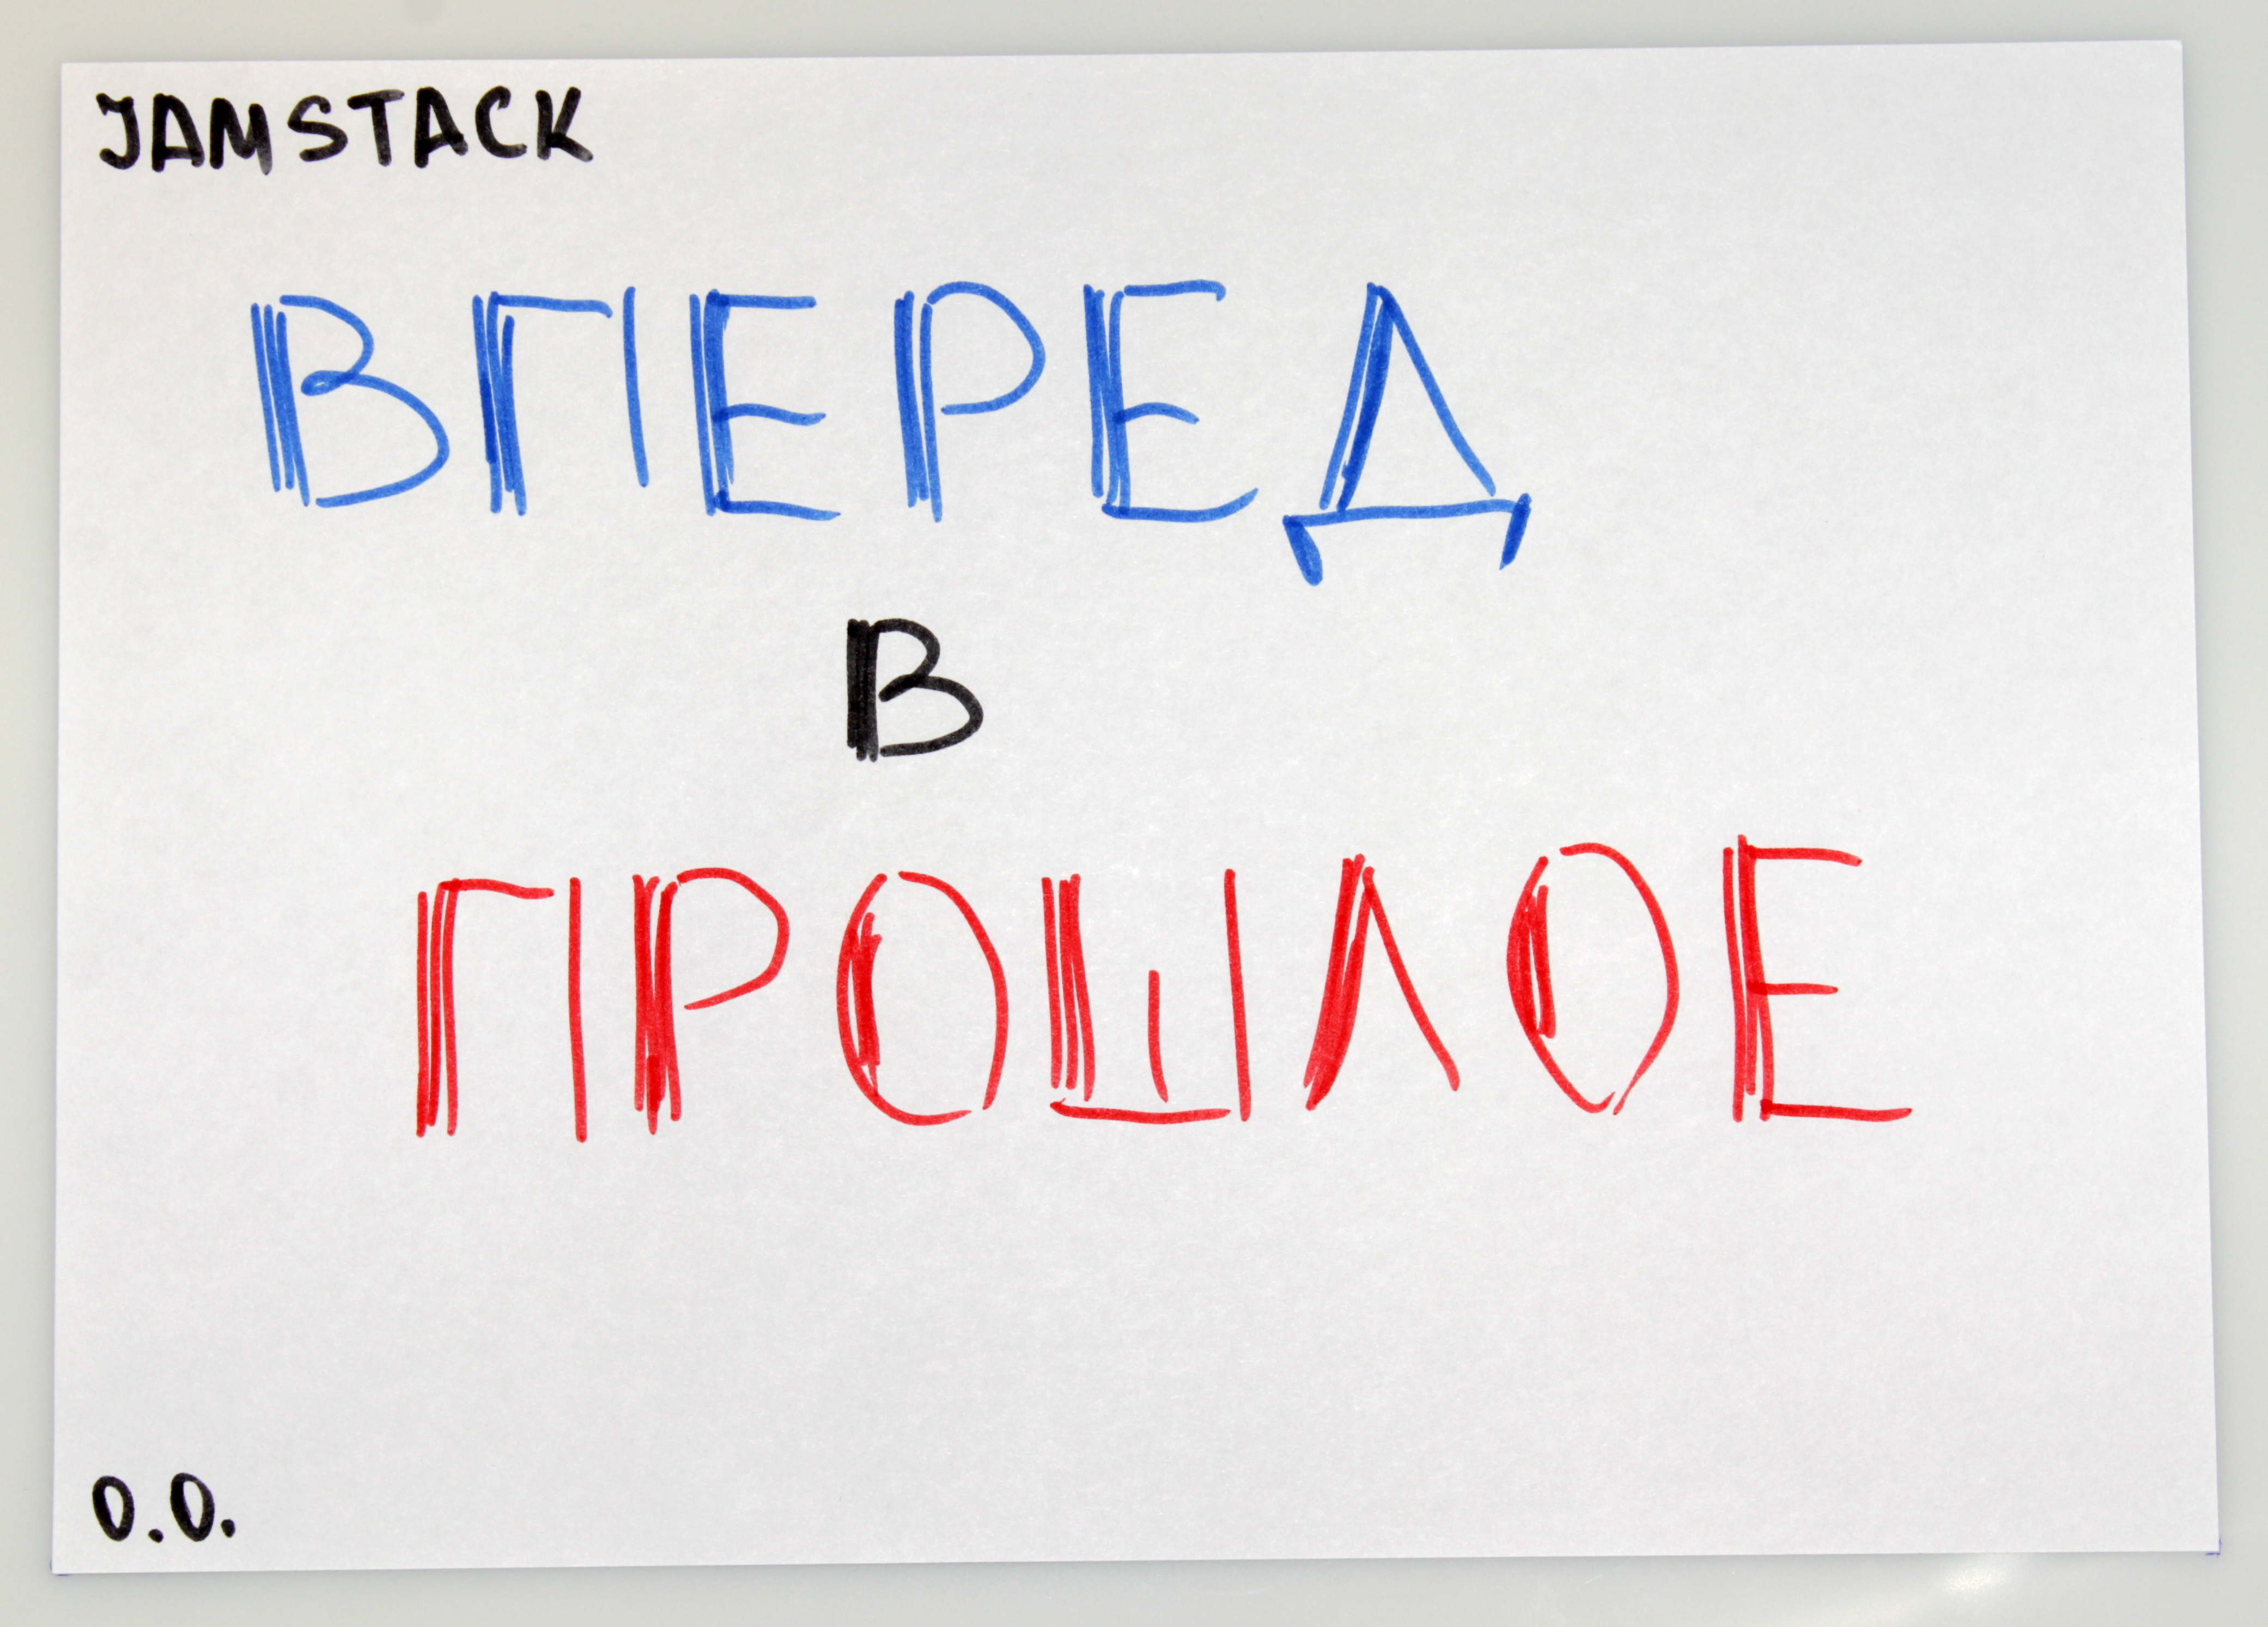 JAMSTACK
ВПЕРЕД
В
ПРОШЛОЕ
O.O.